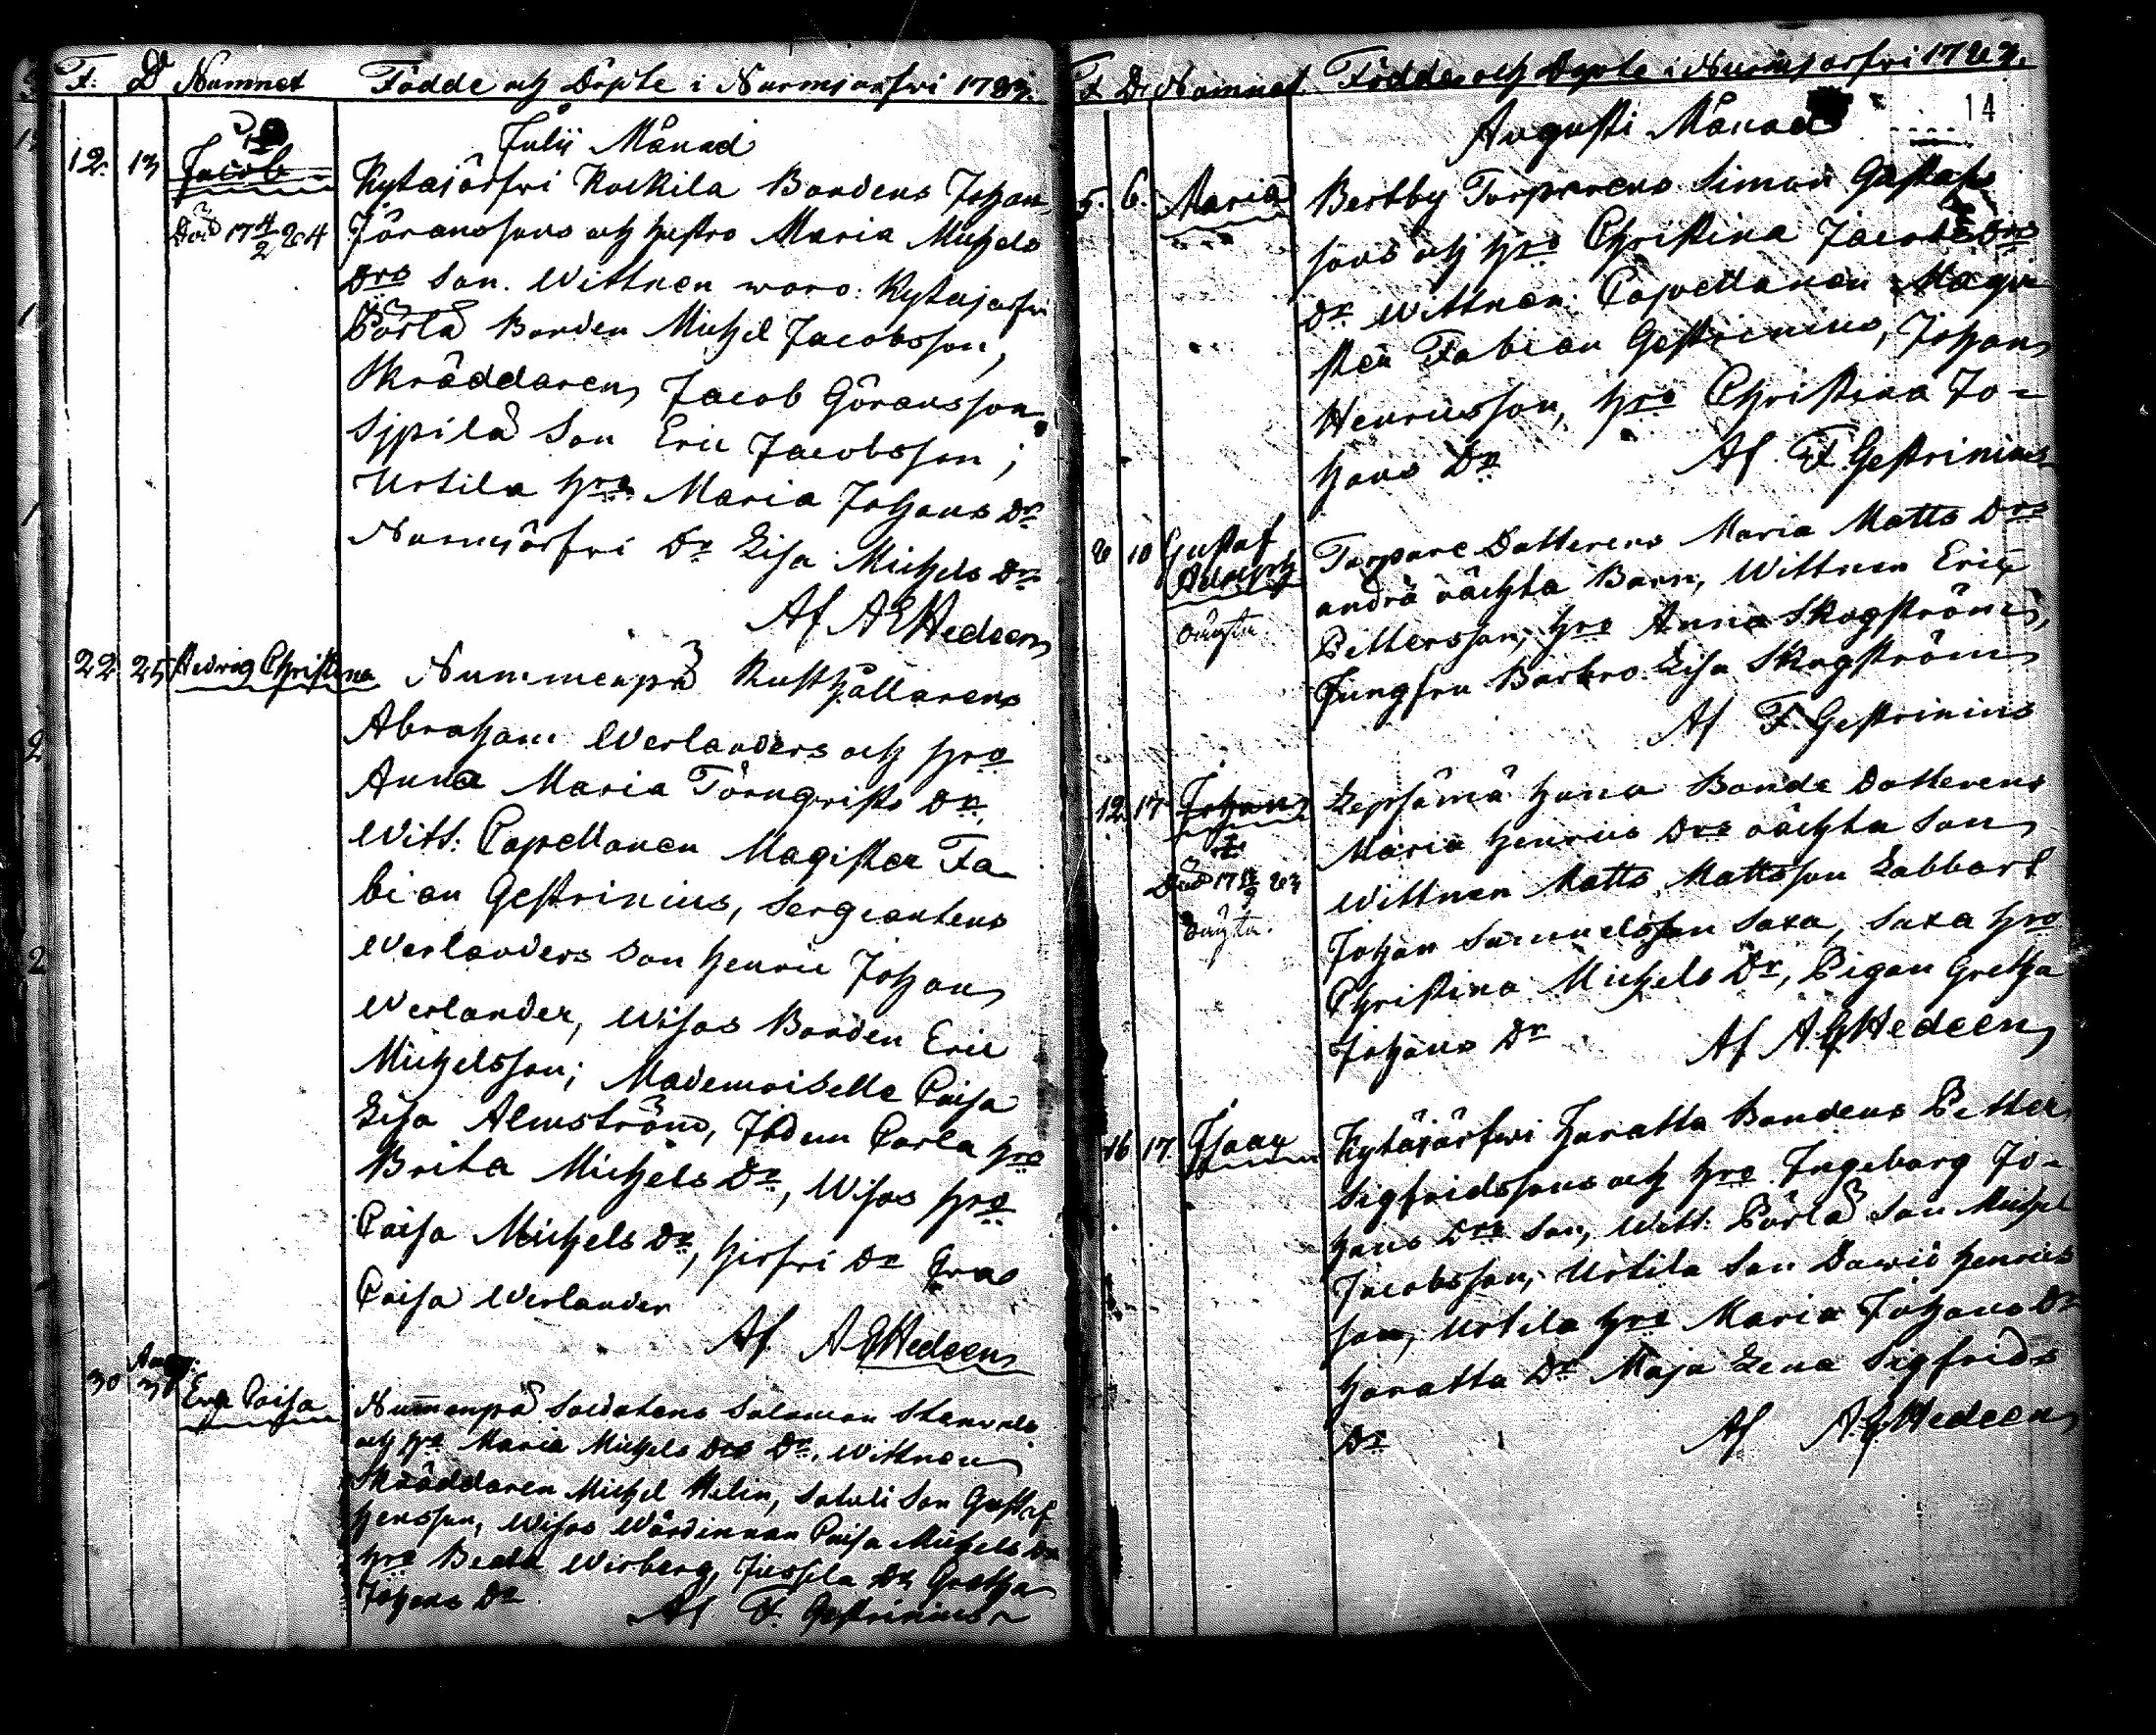 F. D Namnet Födde och Döpte i Nurmijärfvi 1783.
Julii Månad
12. 13 Jacob
Kytäjärfvi Kockila Bondens Johan
Död 17 4/2 84
Göranssons och hustro Maria Michels
Drs Son. Wittnen woro: Kytäjärfvi
Pörlä Bonden Michel Jacobsson,
Skräddaren Jacob Göransson
Sjpilä Son Eric Jacobsson;
Urtila hro Maria Johans Dr
Nurmijärfvi Dr Lisa Michels Dr
Af AEHedeen
22 25 Hedvig Christina Nummenpä Rusthållarens
Abraham Werlanders och hro
Anna Maria Törnqvists Dr,
Witt: Capellanen Magister Fa-
bian Gestrinius, Sergeantens
Werlanders Son Henric Johan
Werlander, Wisas Bonden Eric
Michelsson; Mademoiselle Caisa
Lisa Almström, Perla hro
Brita Michels Dr, Wisas hro
Caisa Michels Dr, Dr
Caisa Werlander
Af AEHedeen
30 Aug: 3 Eva Caisa
Num̅enpä Soldatens Salomon
och hro Maria Michels Drs Dr. Wittnen
Skräddaren Michel Helin, Son Gustaf
Wisas Wärdinnan Caisa Michels Dr
hro Beata Wirberg, Jussila Dr Gretha
Johans Dr
Af F. Gestrinius
F. D. Namnet. Födde och Döpte i Nurmijärfvi 1783.
14
Augusti Månad
5. 6. Maria Bertby Torparens Simon Gustafs
sons och hro Christina Jacobs Drs
Dr Wittnen: Capellanen Magi
sten Fabian Gestrinius, Johan
Henricsson, hro Christina Jo-
hans Dr Af F. Gestrinius
8 10 Gustaf Adolph
Torpare Dotterens Maria Matts Drs
andra oächta Barn, Wittnen Eric
oäghta.
Pettersson, hro Anna Skogström,
Jungfru Barbro Lisa Skogström
Af F. Gestrinius
12. 17 Johan Lepsämä Bonde Dotterens
Maria Henrics Drs oächta Son
Död 17 83
oäghta.
Wittnen Matts Mattsson Labbart
Johan Samuelsson Saxa, Saxa hro
Christina Michels Dr, Pigan Gretha
Johans Dr Af AEHedeen
16 17. Isaac Kytäjärfvi Haratta Bondens Petter
Sigfridssons och hro Ingeborg Jo-
hans Drs Son, Witt: Pörlä Son Michel
Jacobsson, Urtila Son Dawid Henrics
son, Urtila hro Maria Johans Dr
Haratta Dr Maja Lena Sigfrids
Dr Af AEHedeen